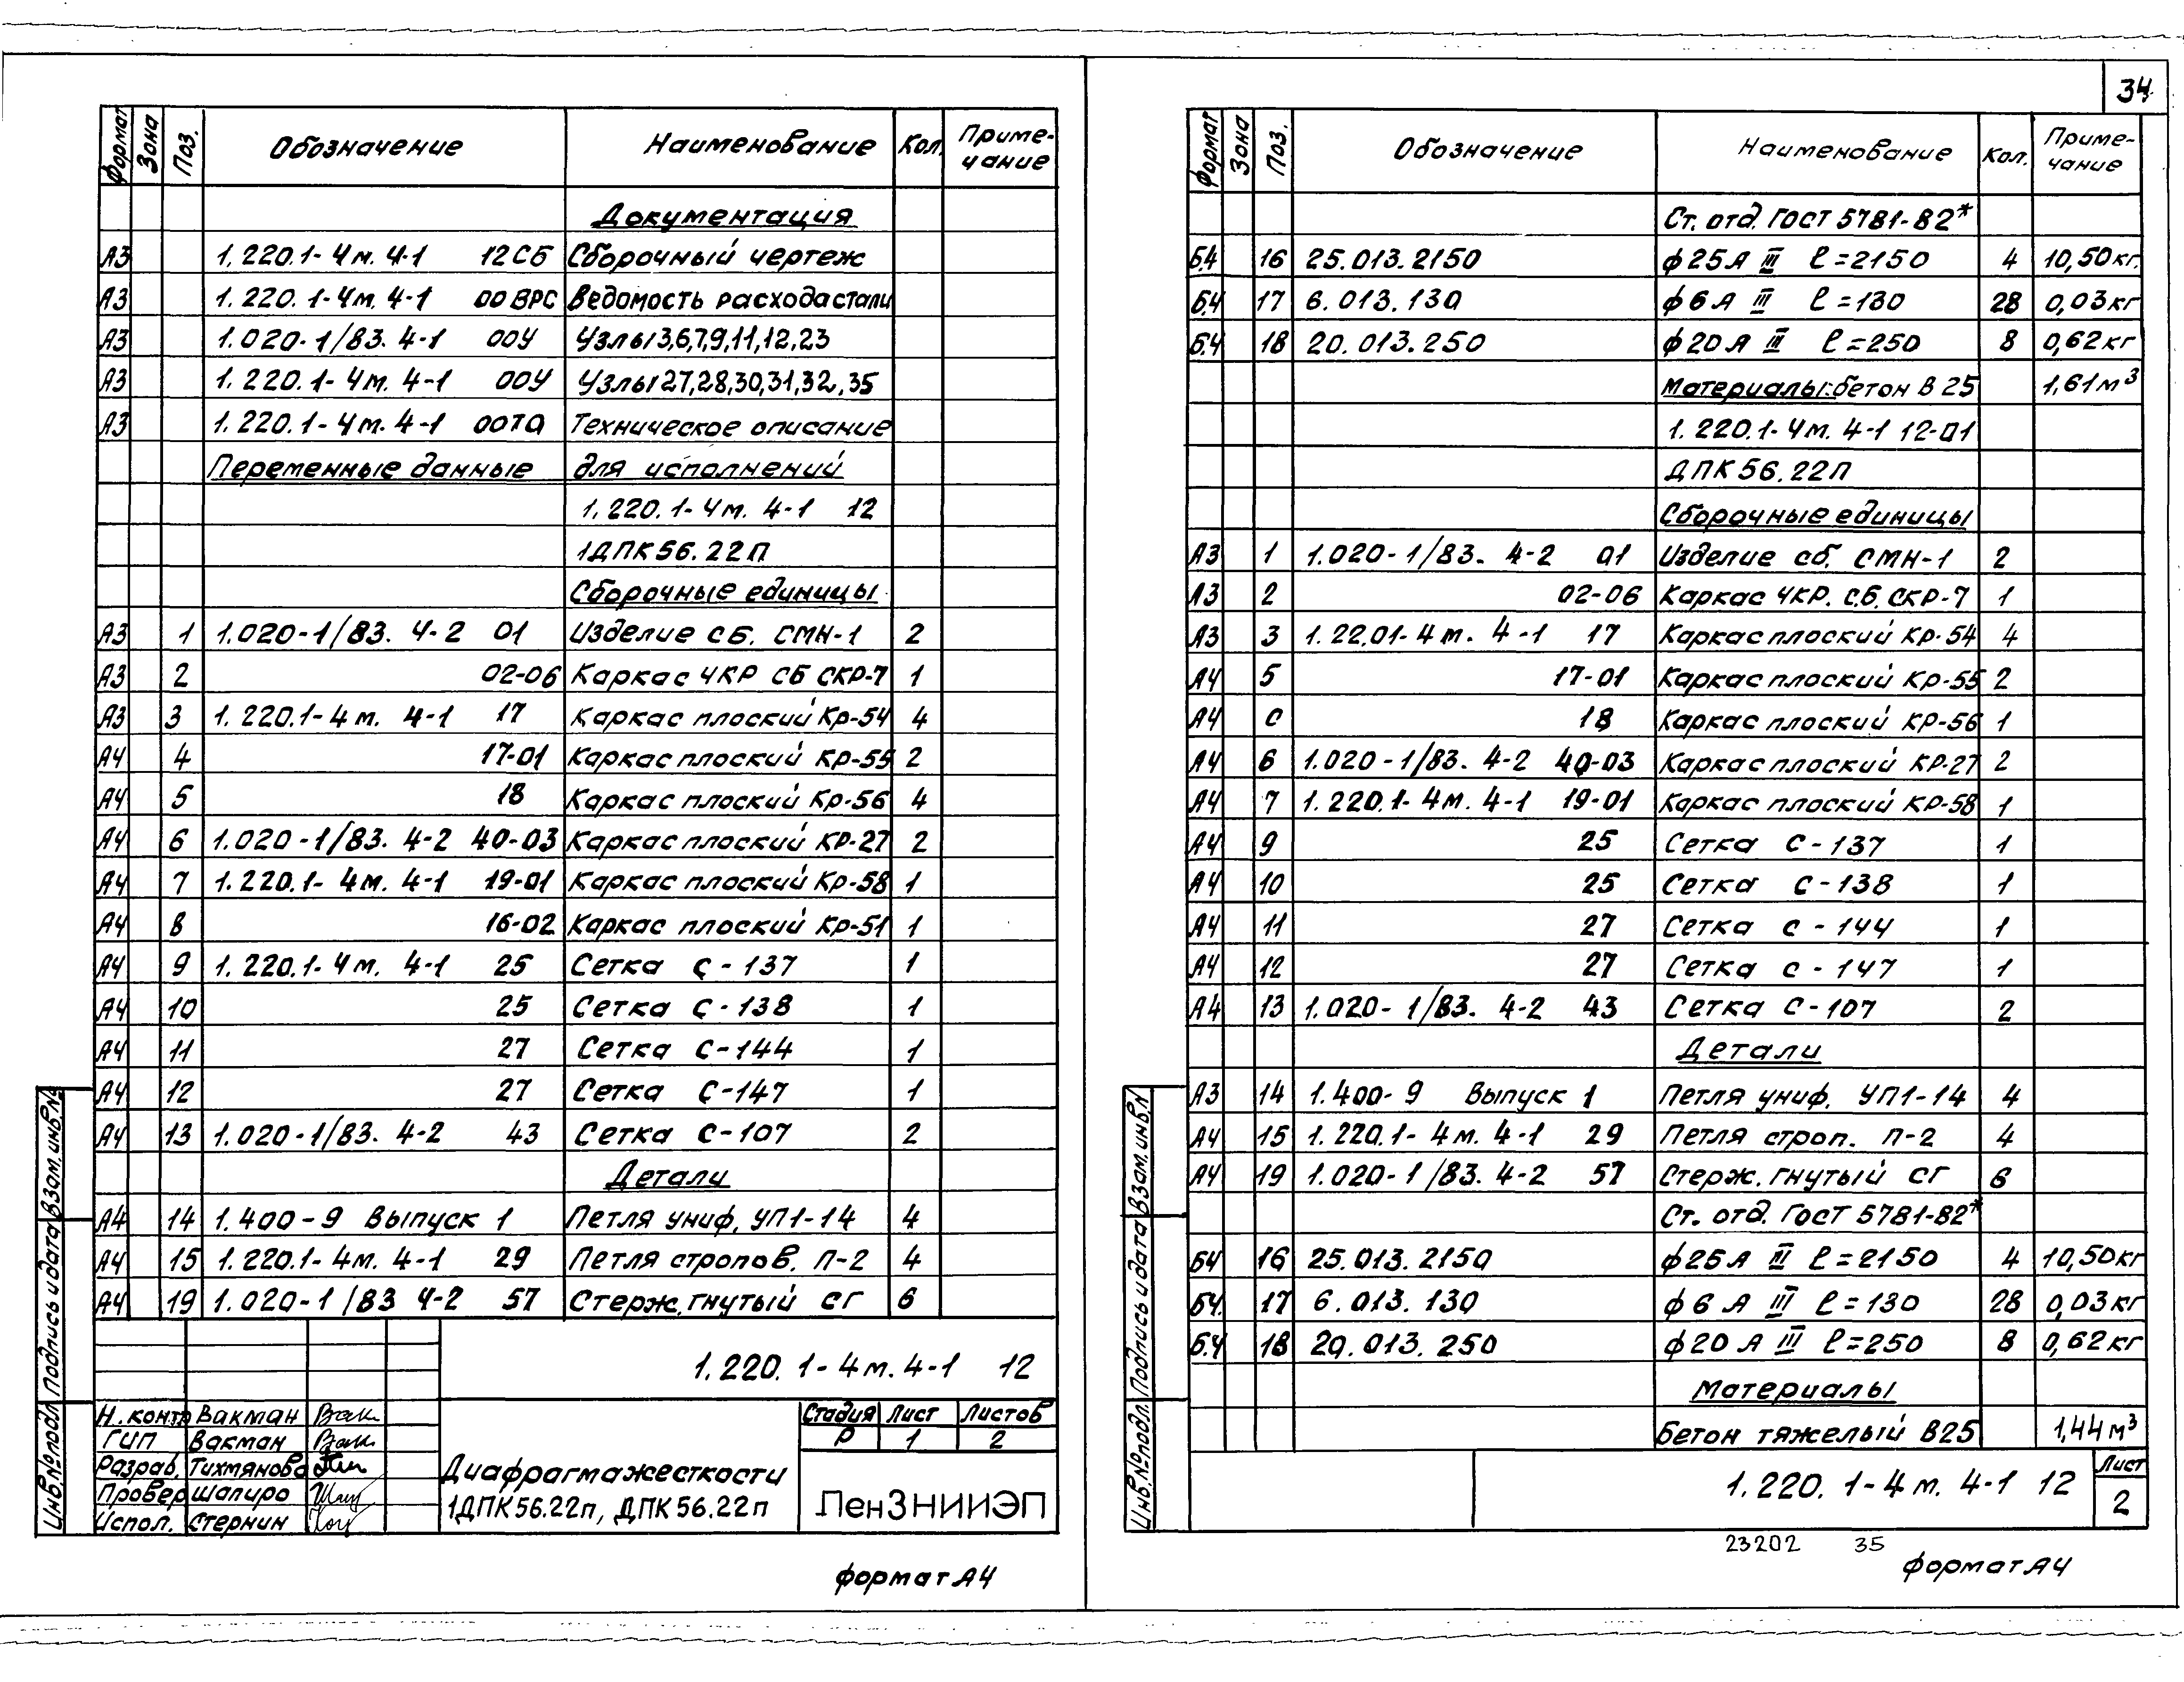 34
Формат Зона Поз. Обозначение Наименование Кол. Приме-
чание
Документация
А3 1.220.1-4м.4-1 12СБ Сборочный чертеж
А3 1.220.1-4м.4-1 00ВРС Ведомость расхода стали
А3 1.020-1/83.4-1 00У Узлы 3,6,7,9,11,12,23
А3 1.220.1-4м.4-1 00У Узлы 27,28,30,31,32,35
А3 1.220.1-4м.4-1 00ТО Техническое описание
Переменные данные для исполнений
1.220.1-4м.4-1 12
1ДПК56.22П
Сборочные единицы
А3 1 1.020-1/83.4-2 01 Изделие сб. СМН-1 2
А3 2 02-06 Каркас ЧКР СБ СКР-7 1
А3 3 1.220.1-4м.4-1 17 Каркас плоский Кр-54 4
А4 4 17-01 Каркас плоский Кр-55 2
А4 5 18 Каркас плоский Кр-56 4
А4 6 1.020-1/83.4-2 40-03 Каркас плоский КР-27 2
А4 7 1.220.1-4м.4-1 19-01 Каркас плоский Кр-58 1
А4 8 16-02 Каркас плоский Кр-51 1
А4 9 1.220.1-4м.4-1 25 Сетка С-137 1
А4 10 25 Сетка С-138 1
А4 11 27 Сетка С-144 1
А4 12 27 Сетка С-147 1
А4 13 1.020-1/83.4-2 43 Сетка С-107 2
Детали
А4 14 1.400-9 Выпуск 1 Петля униф. УП1-14 4
А4 15 1.220.1-4м.4-1 29 Петля стропов. П-2 4
А4 19 1.020-1/83 4-2 57 Стерж.гнутый СГ 6
1.220.1-4м.4-1 12
Н.контр Вакман
ГИП Вакман
Разраб. Тихмянова
Провер Шапиро
Испол. Стернин
Диафрагма жесткости
1ДПК56.22п, ДПК56.22п
Стадия Лист Листов
Р 1 2
ЛенЗНИИЭП
Инв.№подл. Подпись и дата Взам.инв.№
формат А4
Формат Зона Поз. Обозначение Наименование Кол. Приме-
чание
Ст. отд. ГОСТ 5781-82*
Б.4 16 25.013.2150 ф25А III ℓ=2150 4 10,50кг.
Б.4 17 6.013.130 ф6А III ℓ=130 28 0,03кг
Б.4 18 20.013.250 ф20А III ℓ=250 8 0,62кг
Материалы:бетон В25 1,61м³
1.220.1-4м.4-1 12-01
ДПК56.22П
Сборочные единицы
А3 1 1.020-1/83.4-2 01 Изделие сб. СМН-1 2
А3 2 02-06 Каркас ЧКР. С.Б. СКР-7 1
А3 3 1.22.01-4м.4-1 17 Каркас плоский Кр-54 4
А4 5 17-01 Каркас плоский Кр-55 2
А4 С 18 Каркас плоский КР-56 1
А4 6 1.020-1/83.4-2 40-03 Каркас плоский КР-27 2
А4 7 1.220.1-4м.4-1 19-01 Каркас плоский КР-58 1
А4 9 25 Сетка С-137 1
А4 10 25 Сетка С-138 1
А4 11 27 Сетка С-144 1
А4 12 27 Сетка С-147 1
А4 13 1.020-1/83.4-2 43 Сетка С-107 2
Детали
А3 14 1.400-9 Выпуск 1 Петля униф. УП1-14 4
А4 15 1.220.1-4м.4-1 29 Петля строп. П-2 4
А4 19 1.020-1/83.4-2 57 Стерж.гнутый СГ 6
Ст. отд. ГОСТ 5781-82*
Б4 16 25.013.2150 ф25А III ℓ=2150 4 10,50кг
Б4. 17 6.013.130 ф6А III ℓ=130 28 0,03кг
Б.4 18 20.013.250 ф20А III ℓ=250 8 0,62кг
Материалы
Бетон тяжелый В25 1,44м³
1.220.1-4м.4-1 12
Лист
2
Инв.№подл. Подпись и дата Взам.инв.N
23202 35
формат А4